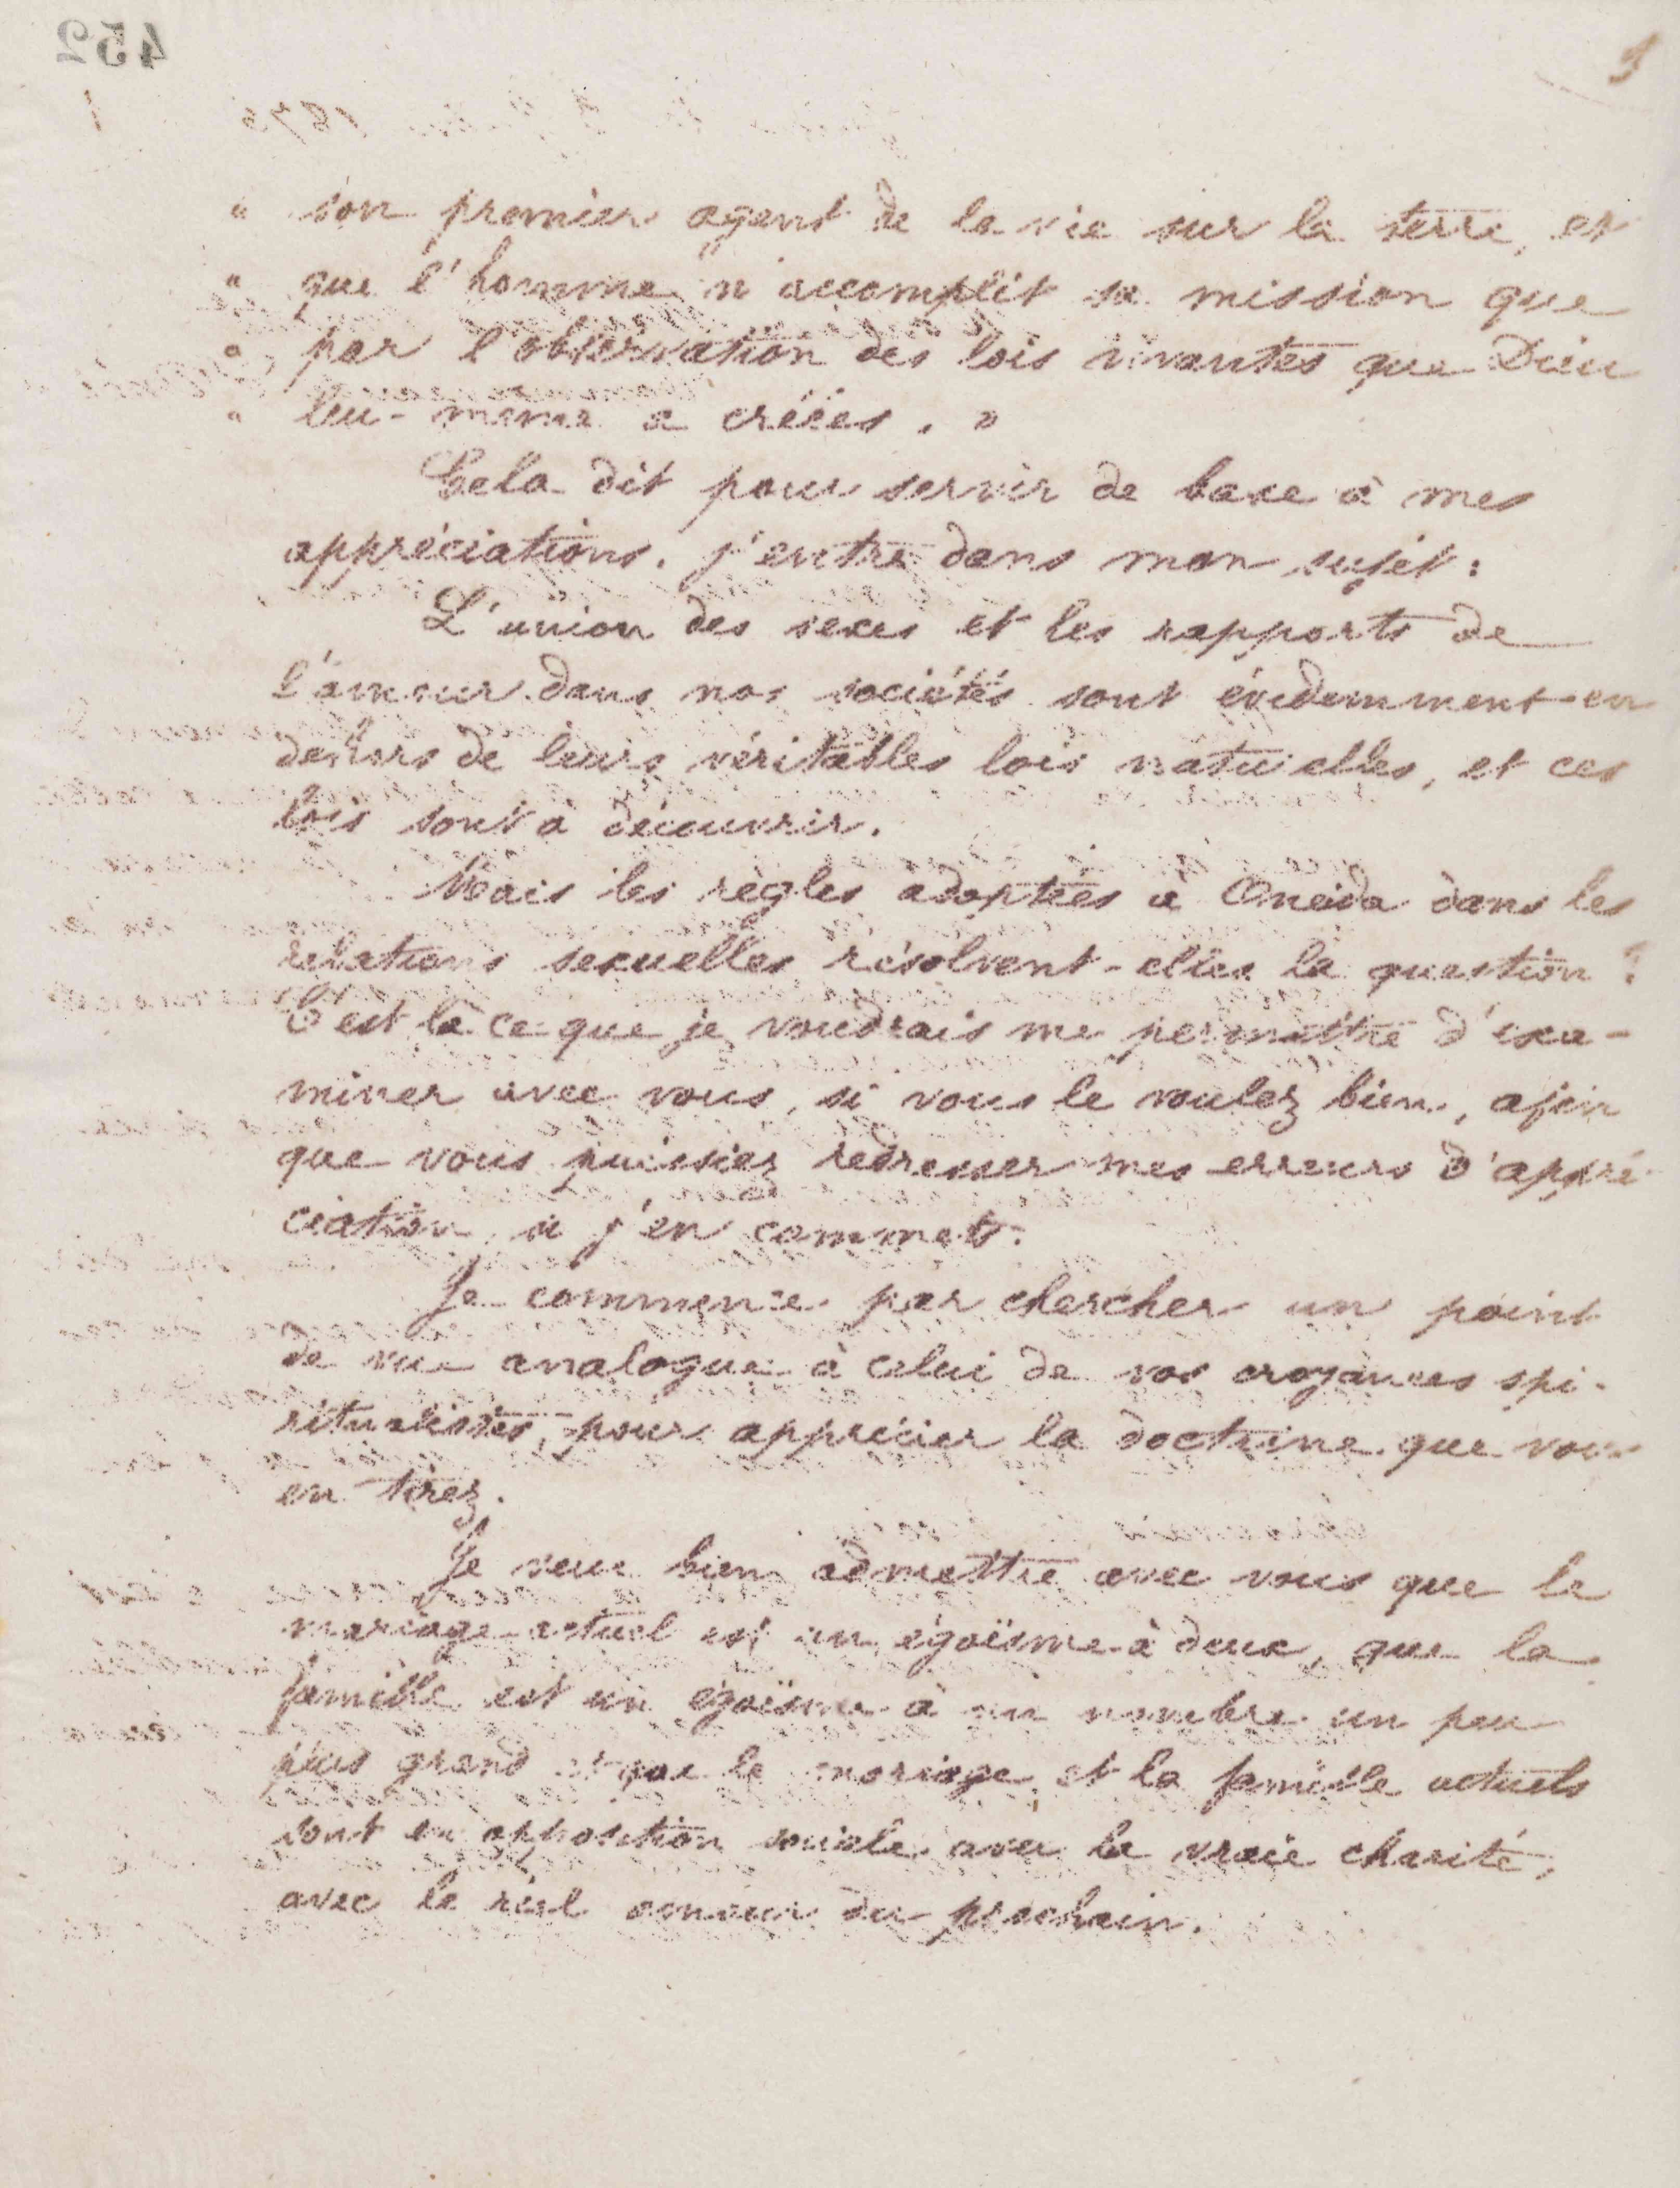 « son premier agent de la vie sur la terre, et
« que l'homme n'accomplit sa mission que
« par l'observation des lois vivantes que Dieu
« lui-même a créées. »
Cela dit pour servir de base à mes
appréciations. j'entre dans mon sujet :
L'union des sexes et les rapports de
l'amour dans nos sociétés sont évidemment en
dehors de leurs véritables lois naturelles, et ces
lois sont à découvrir.
Mais les règles adoptées à Oneida dans les
relations sexuelles résolvent-elles la question ?
C'est là ce que je voudrais me permettre d'exa-
miner avec vous, si vous le voulez bien, afin
que vous puissiez redresser mes erreurs d'appré-
ciation si j'en commets.
Je commence par chercher un point
de vue analogue à celui de vos croyances spi-
ritualistes, pour apprécier la doctrine que vous
en tirez.
Je veux bien admettre avec vous que le
mariage actuel est un égoïsme à deux, que la
famille est un égoïsme à un nombre un peu
plus grand et que le mariage et la famille actuels
sont en opposition sociale avec la vraie charité,
avec le réel amour du prochain.